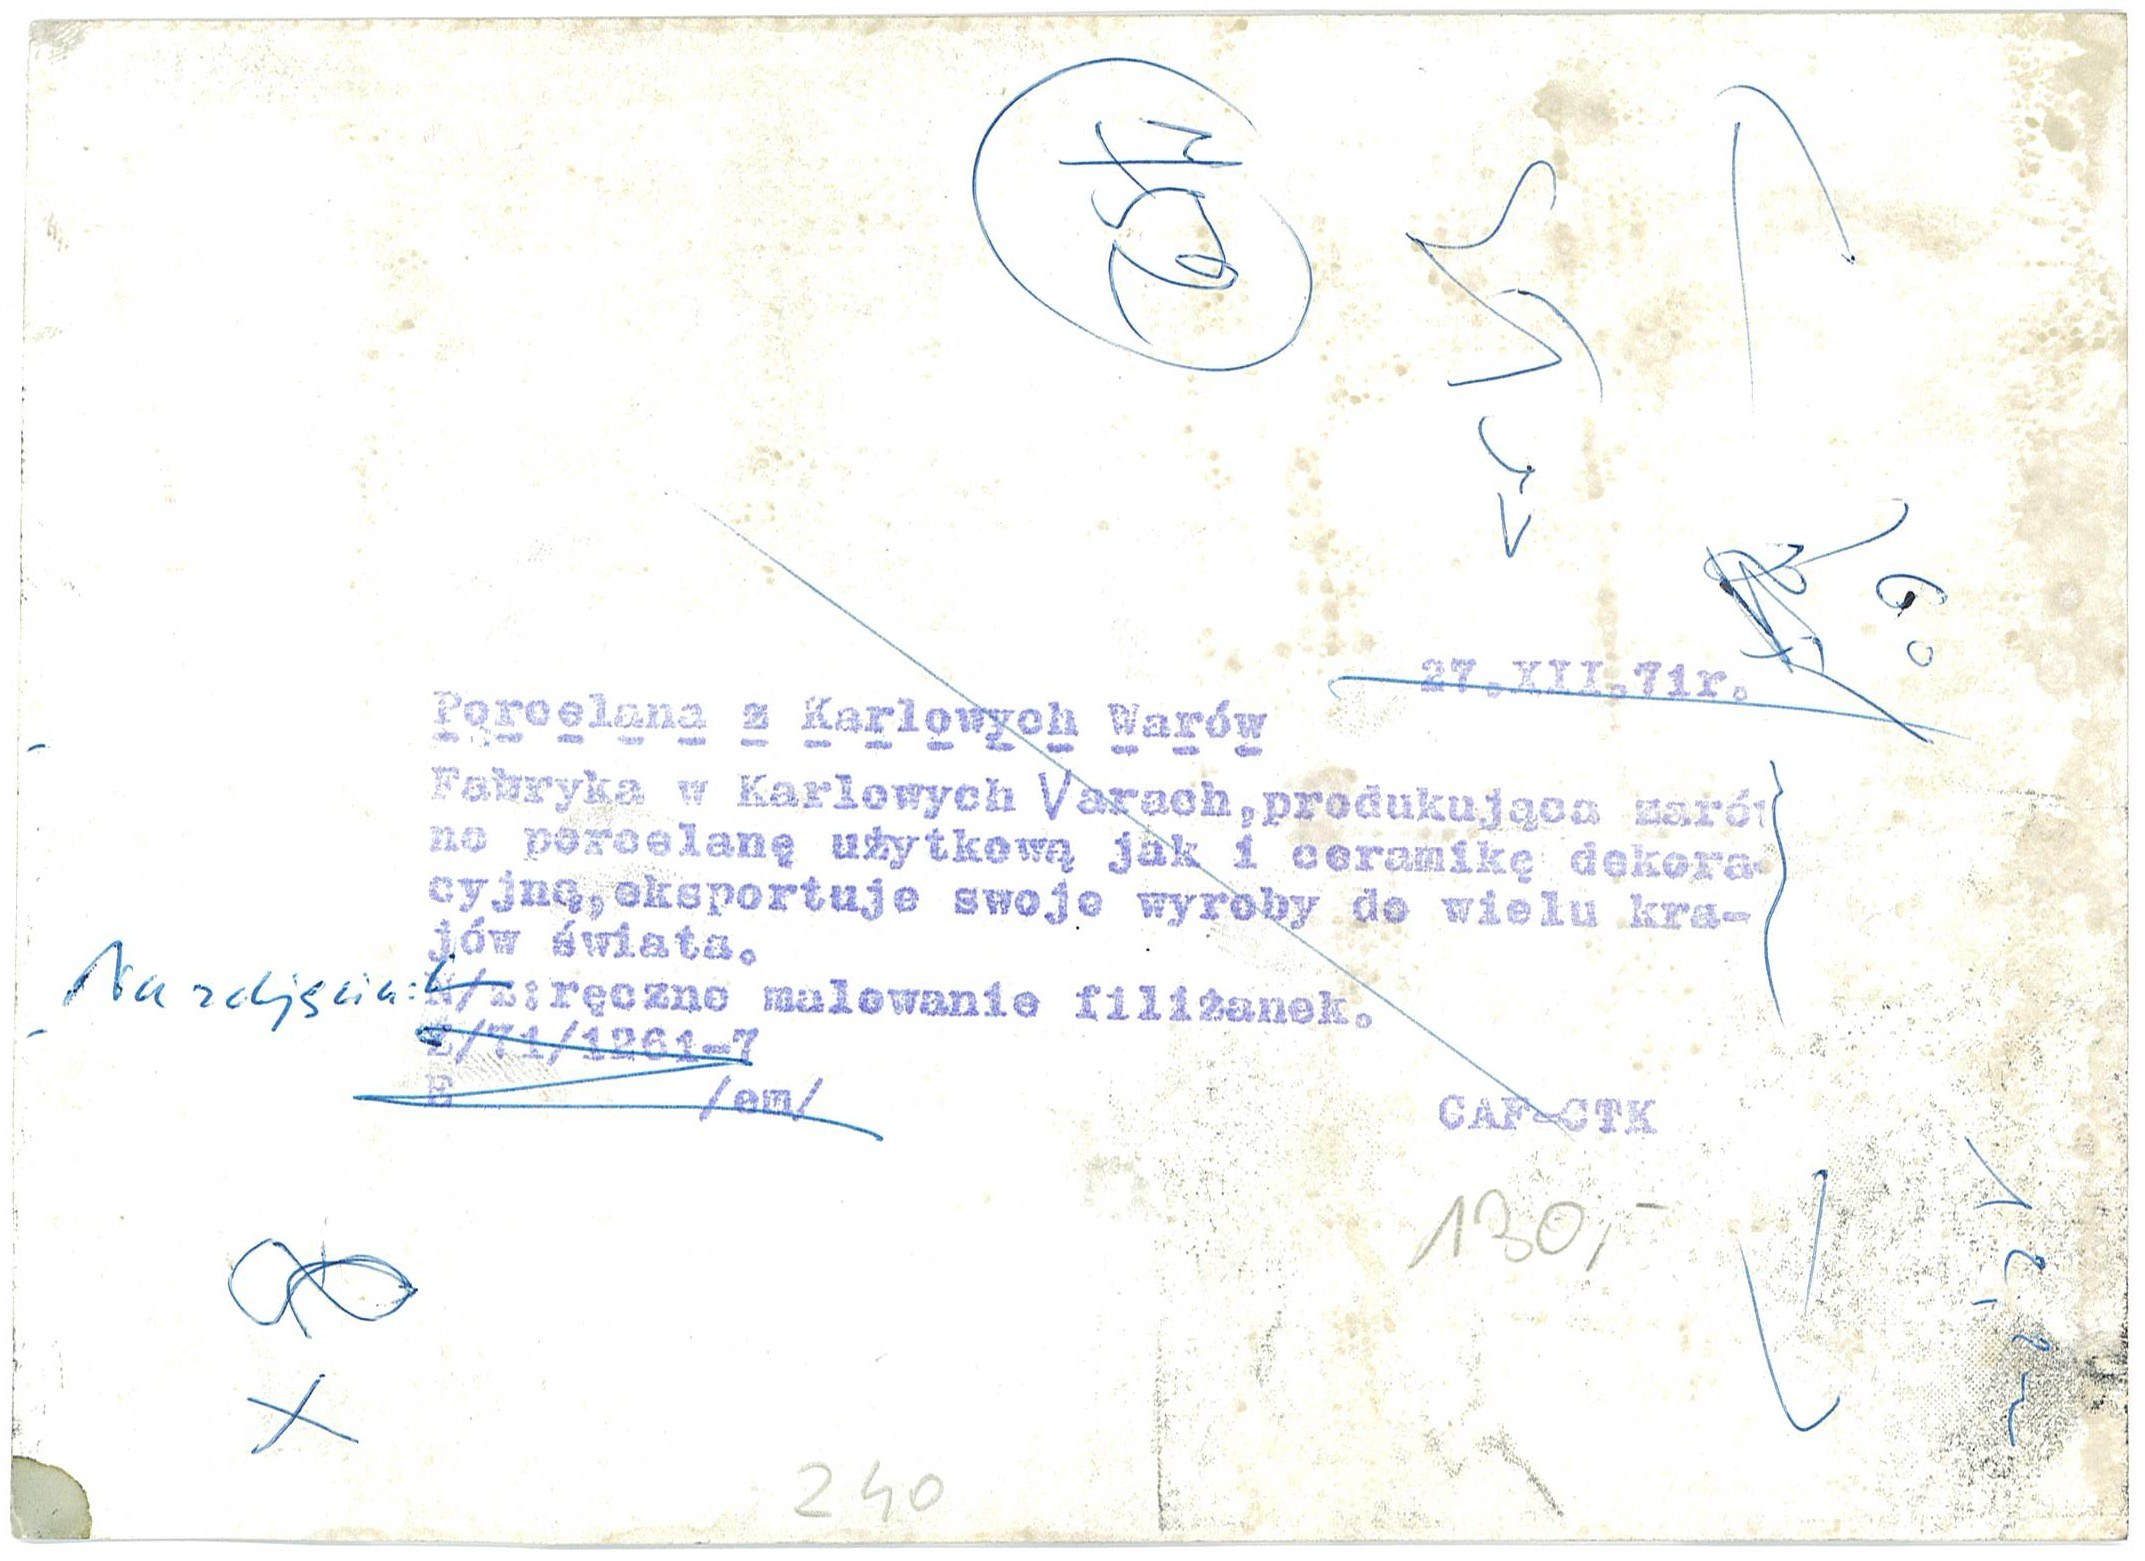 27.XII.71r.
Porcelana z Karlowych Warów
Fabryka w Karlowych Varach,produkująca zarów
no porcelanę użytkową jak i ceramikę dekora-
cyjną,eksportuje swoje wyroby do wielu kra-
jów świata.
Na zdjęciu: N/Z:ręczne malowanie filiżanek.
Z/71/1261-7
E /em/
CAF-CTK
130,-
240